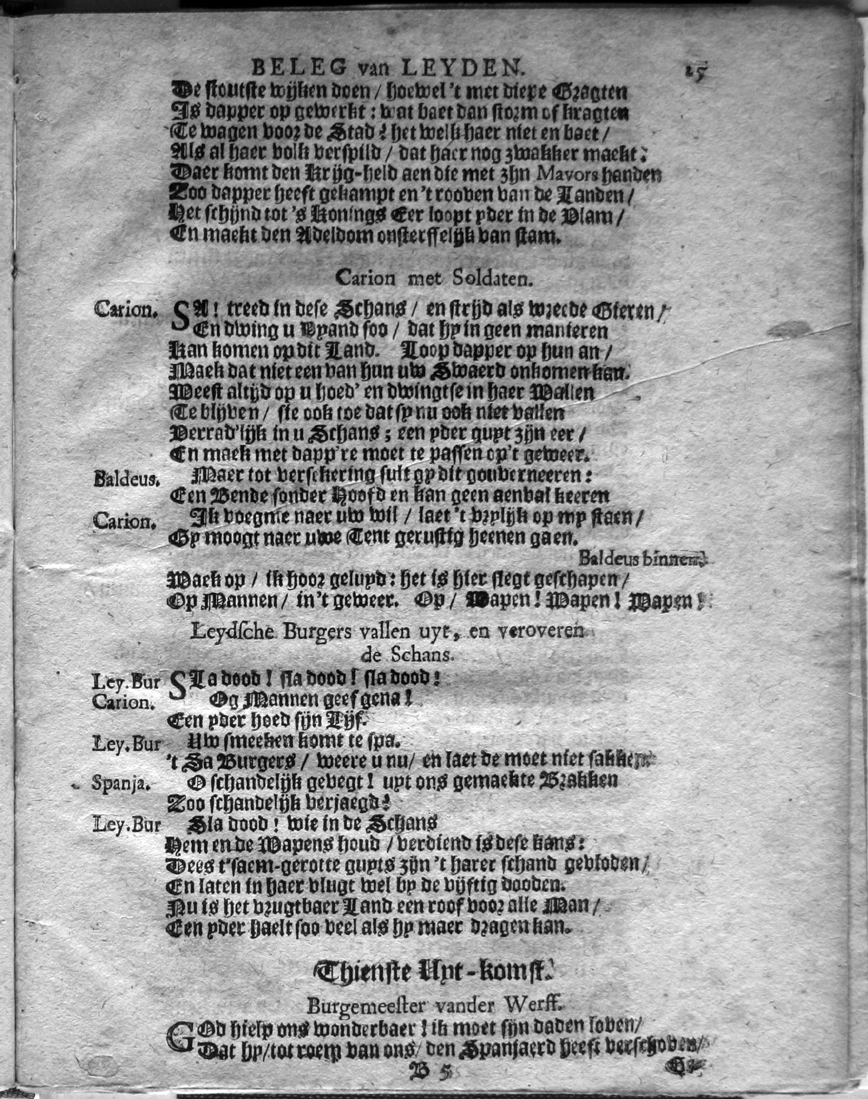 BELEG van LEYDEN. 25
De stoutste wijken doen / hoewel 't met diepe Gragten
Is dapper op gewerkt : wat baet dan storm of kragten
Te wagen voor de Stad ? het welk haer niet en baet /
Als al haer volk verspild / dat haer nog zwakker maekt :
Daer komt den Krijg-held aen die met zijn Mavors handen
Zoo dapper heeft gekampt en 't rooven van de Landen /
Het schijnd tot 's Konings Eer loopt yder in de Vlam /
En maekt den Adeldom onsterffelijk van stam.
Carion met Soldaten.
Carion. SA! treed in dese Schans / en strijd als wreede Gieren /
En dwing u Vyand soo / dat hy in geen manieren
Kan komen op dit Land. Loop dapper op hun an /
Maek dat niet een van hun uw Swaerd onkomen kan.
Weest altijd op u hoed' en dwingtse in haer Wallen
Te blijven / sie ook toe dat sy nu ook niet vallen
Verrad'lijk in u Schans ; een yder quyt zijn eer /
En maek met dapp're moet te passen op 't geweer.
Baldeus. Maer tot versekering sult gy dit gouverneeren :
Een Bende sonder Hoofd en kan geen aenval keeren
Carion. Ik voegme naer uw wil / laet 't vrylijk op my staen /
Gy moogt naer uwe Tent gerustig heenen gaen.
Baldeus binnen.
Waek op / ik hoor geluyd : het is hier slegt geschapen /
Op Mannen / in 't geweer. Op / Wapen ! Wapen ! Wapen !
Leydsche Burgers vallen uyt, en veroveren
de Schans.
Ley.Bur SLa dood ! sla dood ! sla dood !
Carion. Og Mannen geef gena !
Een yder hoed sijn Lijf.
Ley.Bur Uw smeeken komt te spa.
't Sa Burgers / weere u nu / en laet de moet niet sakken
Spanja. O schandelijk gevegt ! uyt ons gemaekte Brakken
Zoo schandelijk verjaegd !
Ley.Bur Sla dood ! wie in de Schans
Hem en de Wapens houd / verdiend is dese kans :
Dees t'saem-gerotte guyts zijn 't harer schand gevloden /
En laten in haer vlugt wel by de vijftig dooden.
Nu is het vrugtbaer Land een roof voor alle Man /
Een yder haelt soo veel als hy maer dragen kan.
Thienste Uyt-komst.
Burgemeester vander Werff.
GOd hielp ons wonderbaer ! ik moet sijn daden loven /
Dat hy / tot roem van ons / den Spanjaerd heeft verschoven /
B 5